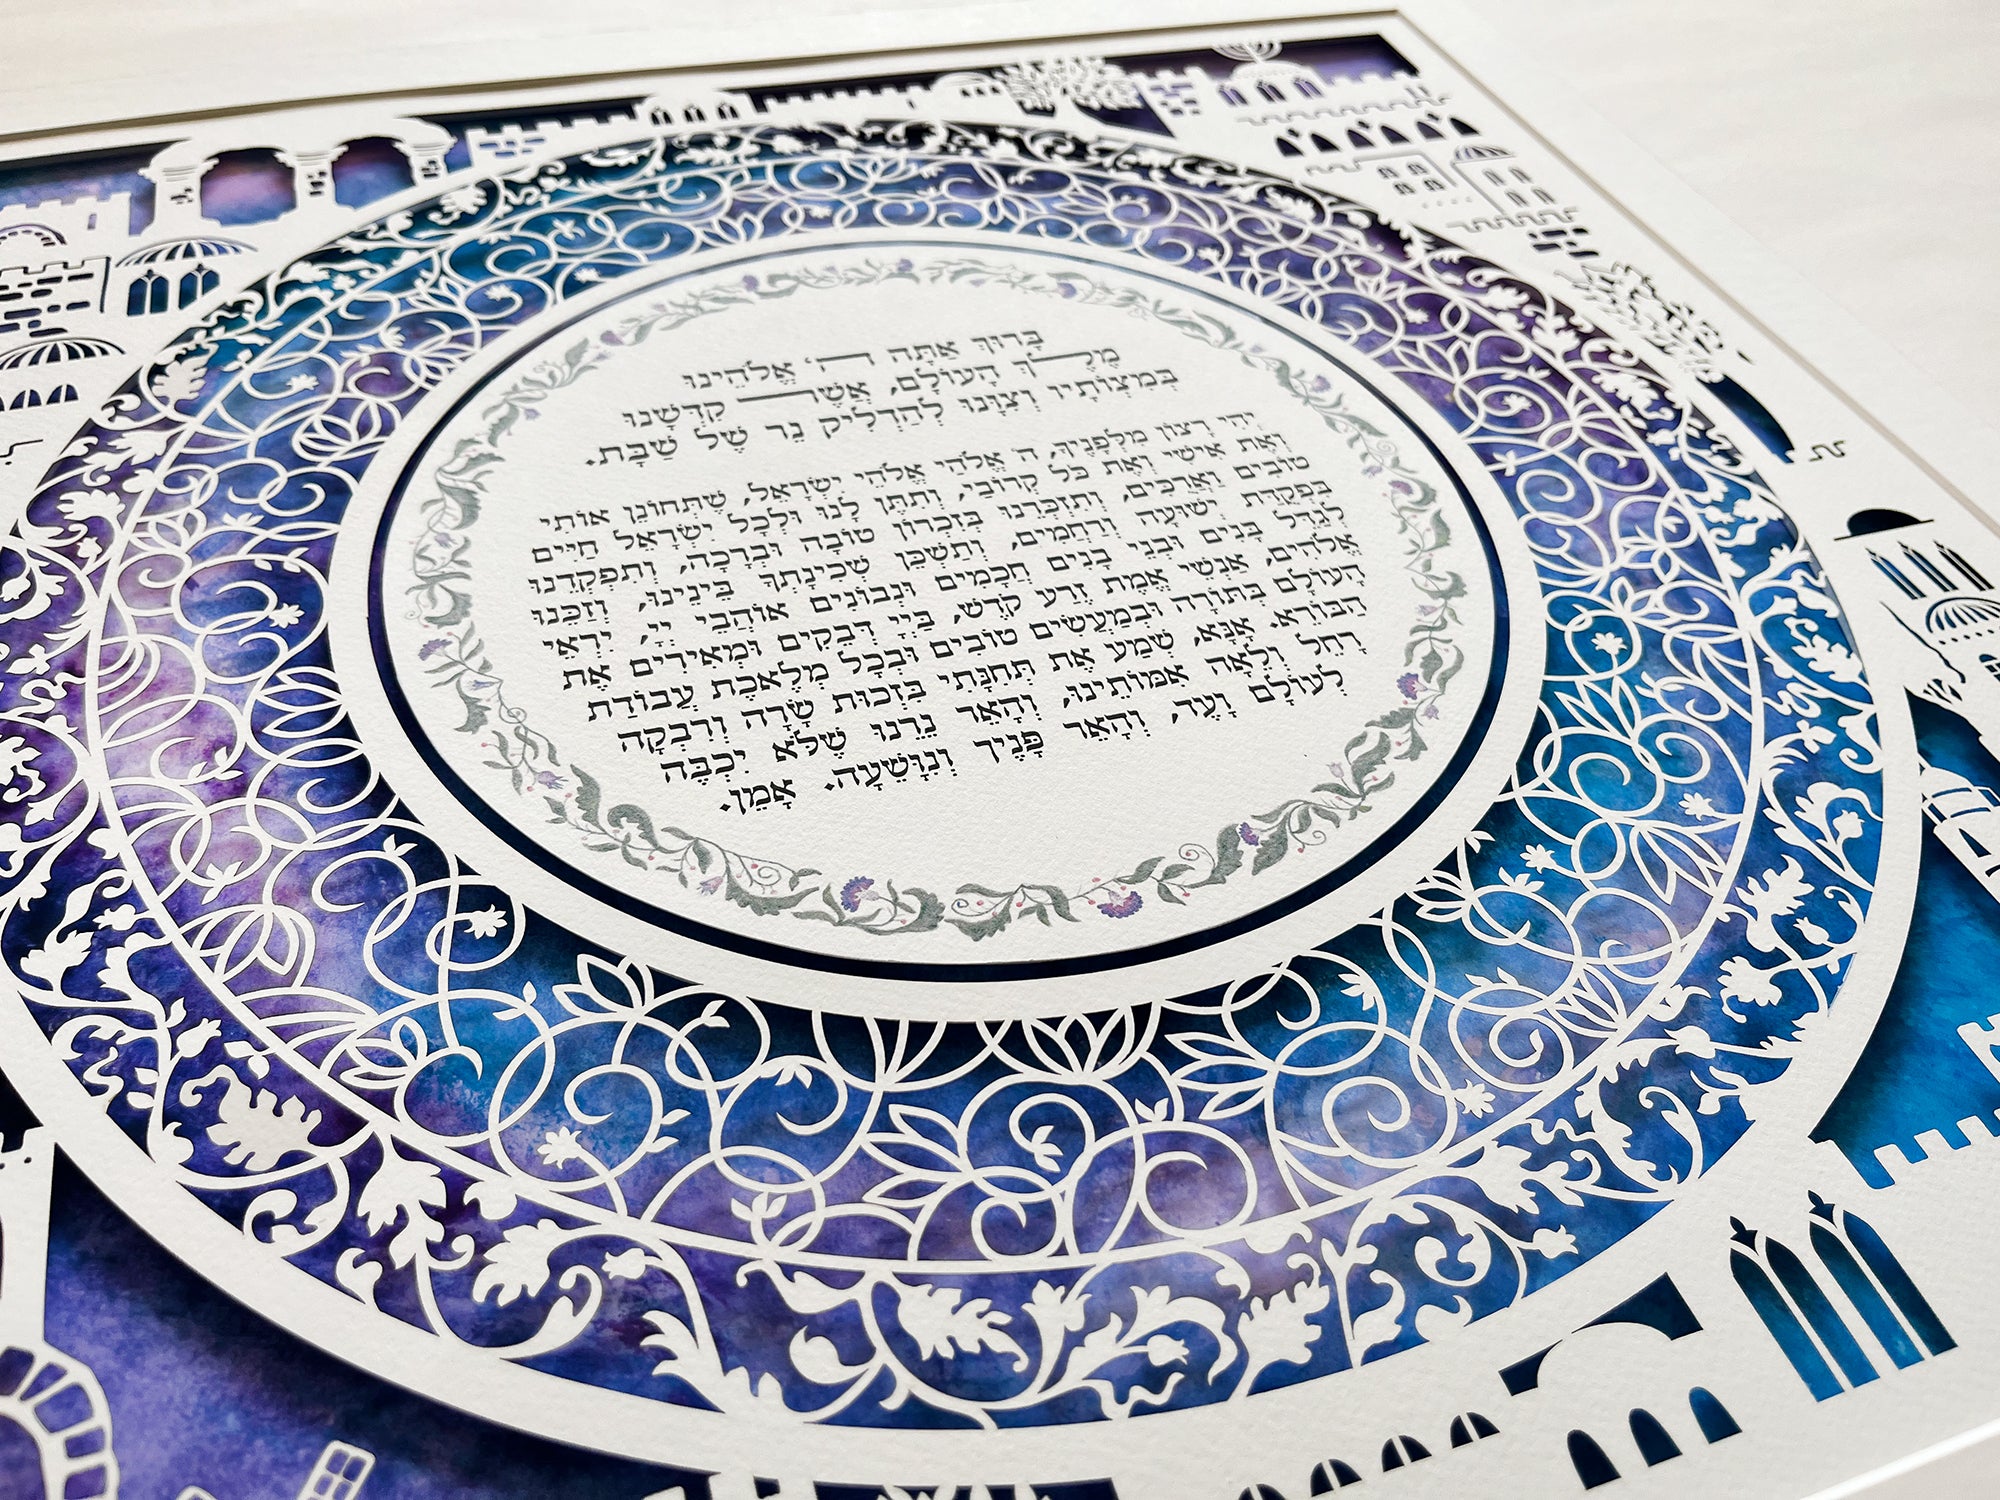 בָּרוּךְ אַתָּה ה׳ אֱלֹהֵינוּ
מֶלֶךְ הָעוֹלָם, אֲשֶׁר קִדְּשָׁנוּ
בְּמִצְוֹתָיו וְצִוָּנוּ לְהַדְלִיק נֵר שֶׁל שַׁבָּת.
יְהִי רָצוֹן מִלְּפָנֶיךָ, ה׳ אֱלֹהַי אֱלֹהֵי יִשְׂרָאֵל, שֶׁתְּחוֹנֵן אוֹתִי
וְאֶת אִישִׁי וְאֶת כֹּל קְרוֹבַי, וְתִתֵּן לָנוּ וּלְכָל יִשְׂרָאֵל חַיִּים
טוֹבִים וַאֲרֻכִּים, וְתִזְכְּרֵנוּ בְּזִכְרוֹן טוֹבָה וּבְרָכָה, וְתִפְקְדֵנוּ
בִּפְקֻדַּת יְשׁוּעָה וְרַחֲמִים, וְתַשְׁכֵּן שְׁכִינָתְךָ בֵּינֵינוּ, וְזַכֵּנוּ
לְגַדֵּל בָּנִים וּבְנֵי בָנִים חֲכָמִים וּנְבוֹנִים אוֹהֲבֵי יְיָ, יִרְאֵי
אֱלֹהִים, אַנְשֵׁי אֱמֶת זֶרַע קֹדֶשׁ, בַּיְיָ דְּבֵקִים וּמְאִירִים אֶת
הָעוֹלָם בְּתוֹרָה וּבְמַעֲשִׂים טוֹבִים וּבְכָל מְלֶאכֶת עֲבוֹדַת
הַבּוֹרֵא. אָנָּא, שְׁמַע אֶת תְּחִנָּתִי בִּזְכוּת שָׂרָה וְרִבְקָה
רָחֵל וְלֵאָה אִמּוֹתֵינוּ, וְהָאֵר נֵרֵנוּ שֶׁלֹּא יִכְבֶּה
לְעוֹלָם וָעֶד, וְהָאֵר פָּנֶיךָ וְנִוָּשֵׁעָה. אָמֵן.